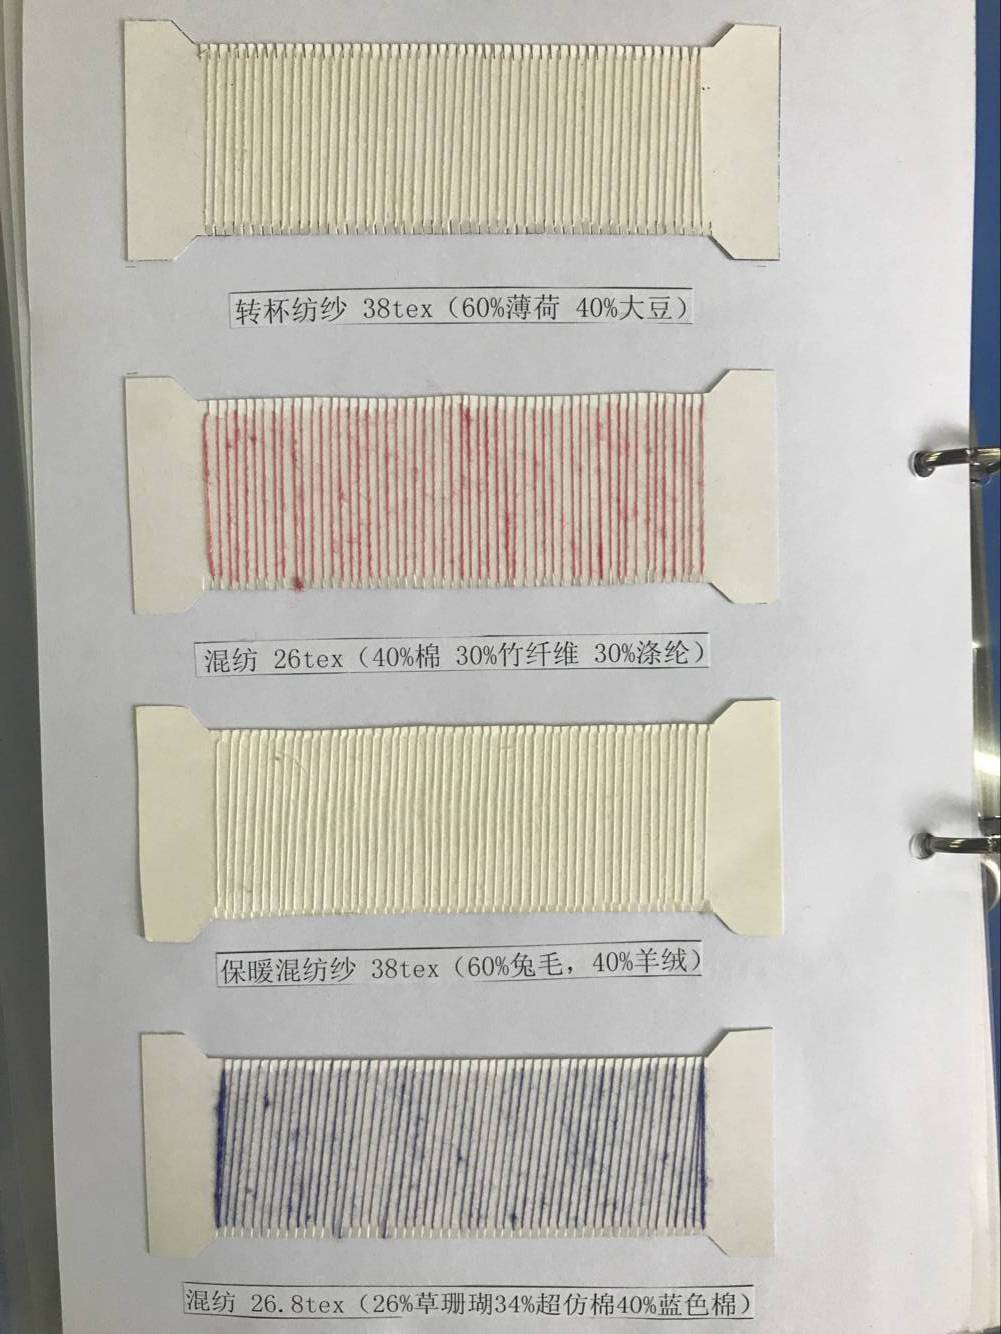 转杯纺纱 38tex（60%薄荷 40%大豆）
混纺 26tex（40%棉 30%竹纤维 30%涤纶）
保暖混纺纱 38tex（60%兔毛，40%羊绒）
混纺 26.8tex（26%草珊瑚34%超仿棉40%蓝色棉）